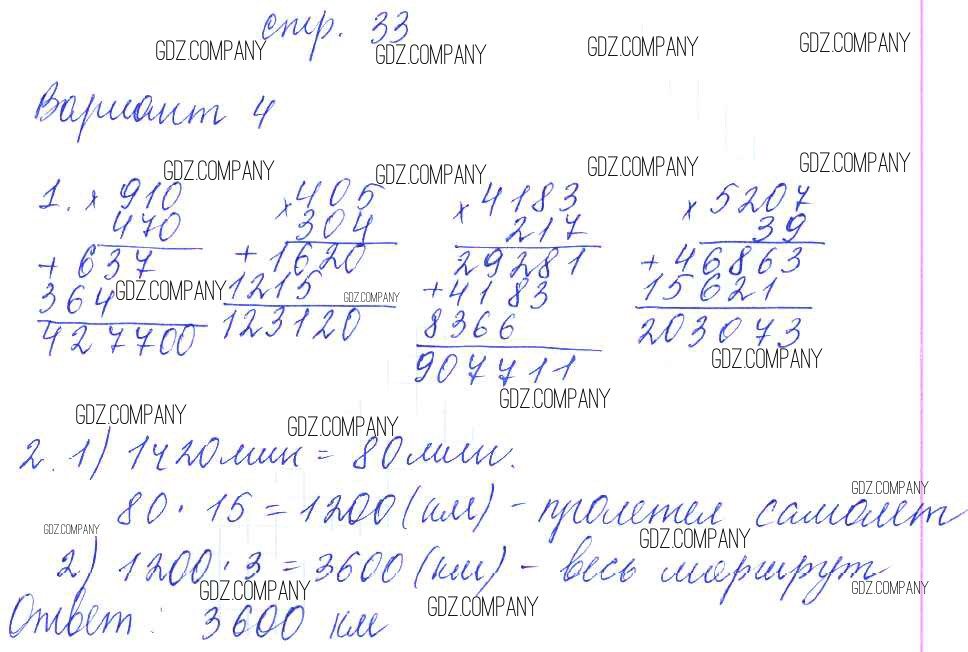 стр. 33
GDZ.COMPANY GDZ.COMPANY GDZ.COMPANY GDZ.COMPANY
Вариант 4
GDZ.COMPANY GDZ.COMPANY GDZ.COMPANY GDZ.COMPANY
1. × 910 × 405 × 4183 × 5207
470 304 217 39
+ 637 + 1620 29281 + 46863
364 GDZ.COMPANY 1215 GDZ.COMPANY + 4183 15621
427700 123120 8366 203073
GDZ.COMPANY
907711
GDZ.COMPANY
GDZ.COMPANY GDZ.COMPANY
2. 1) 1ч 20 мин = 80 мин.
GDZ.COMPANY
80 · 15 = 1200 (км) - пролетел самолет
GDZ.COMPANY GDZ.COMPANY
2) 1200 · 3 = 3600 (км) - весь маршрут
GDZ.COMPANY GDZ.COMPANY GDZ.COMPANY
Ответ: 3600 км